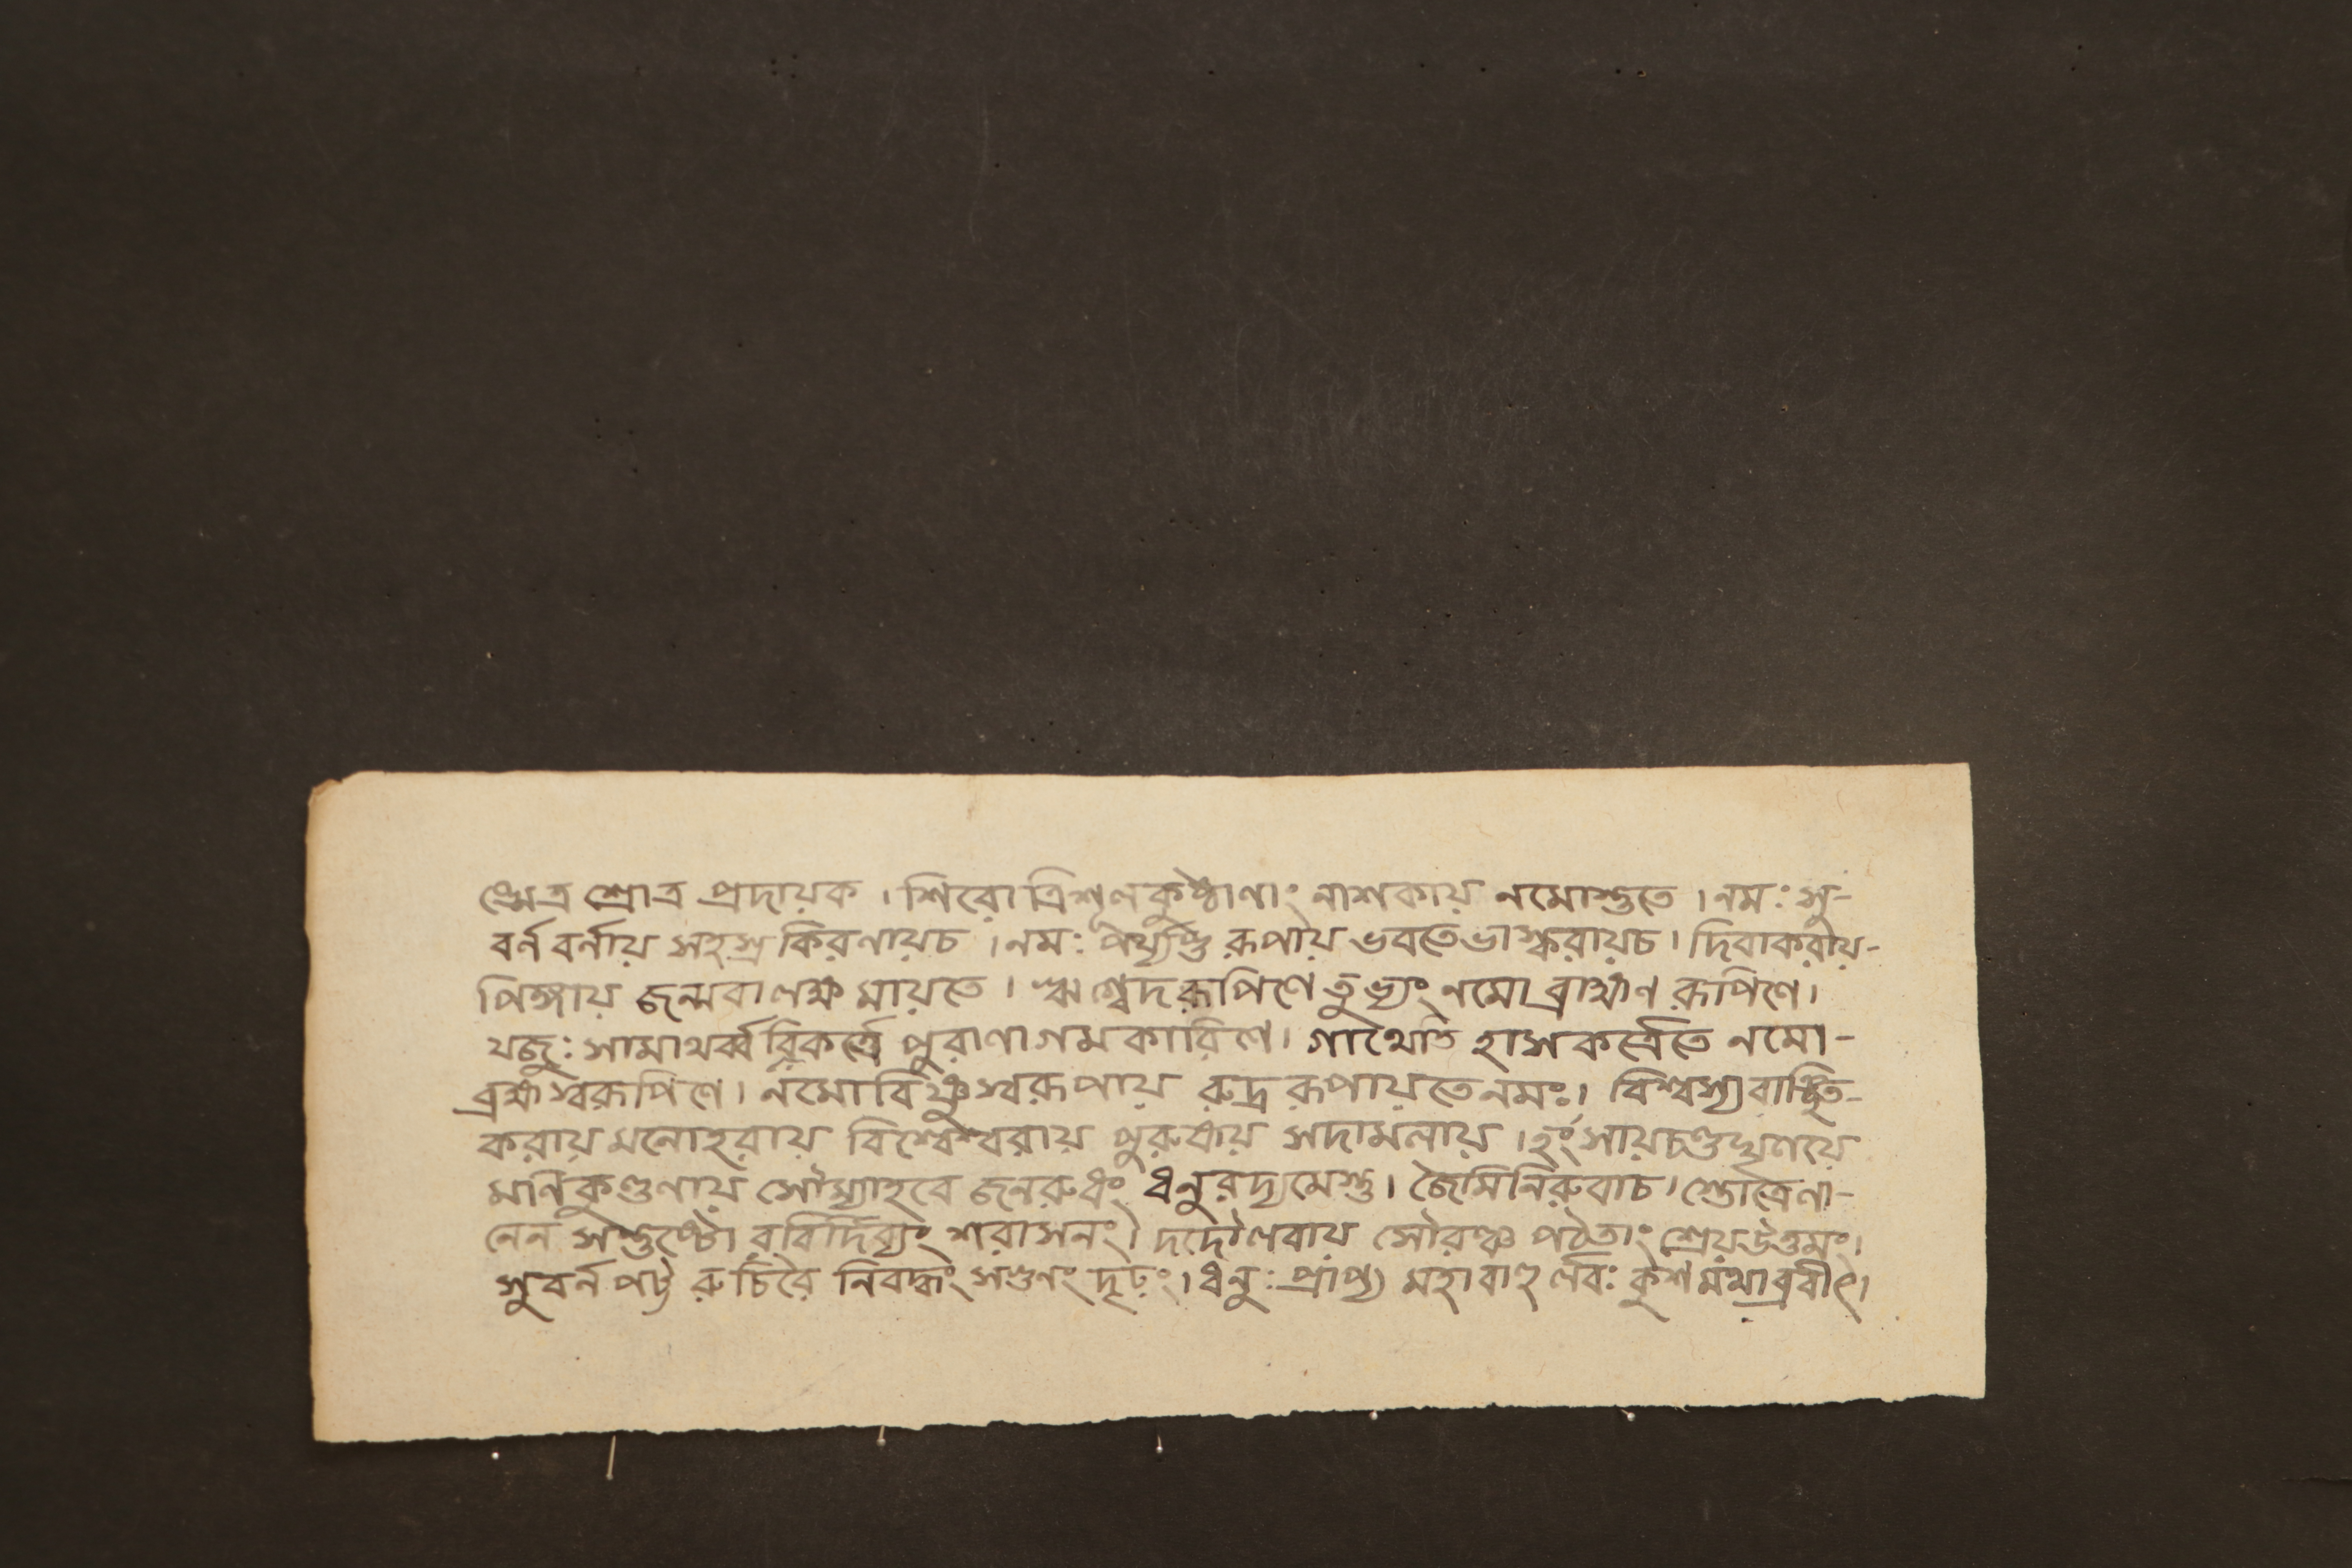 নেত্র শ্রোত্র প্রদায়ক। শিরো ত্রিশূলকুষ্ঠাণাং নাশকায় নমোস্তুতে। নমঃ সু-
বর্ন বর্নায় সহস্র কিরণায়চ। নমঃ রূপায় ভবতেভাস্করায়চ। দিবাকরায়-
পিঙ্গায় মায়তে। ঋগ্বেদরূপিণে তুভ্যং নমো ব্রাহ্মণ রূপিণে।
যজুঃ সামাথর্ব্ব পুরাণাগমকারিণে। গাথেতি হাসকর্ত্রেতে নমো-
ব্রহ্মস্বরূপিণে। নমোবিষ্ণুস্বরূপায় রুদ্র রূপায়তেনমঃ। বিশ্বস্যবাঞ্ছিত-
করায় মনোহরায় বিশ্বেশ্বরায় পুরুষায় সদামলায়।
মনিকুণ্ডলায় সৌম্যাহবে ধনুরদ্যমেস্তু। জৈমিনিরুবাচ। স্তোত্রেণা-
নেন সন্তুষ্টো রবির্দিব্যং শরাসনং। দদৌলবায় সৌরঞ্চ পঠতাং শ্রেয়উত্তমং।
সুবর্ন পট্ট রুচিরৈ নিবদ্ধং সগুণং দৃঢ়ং। ধনুঃ প্রাপ্য মহাবাহু র্লবঃ কুশমথাব্রবীৎ।